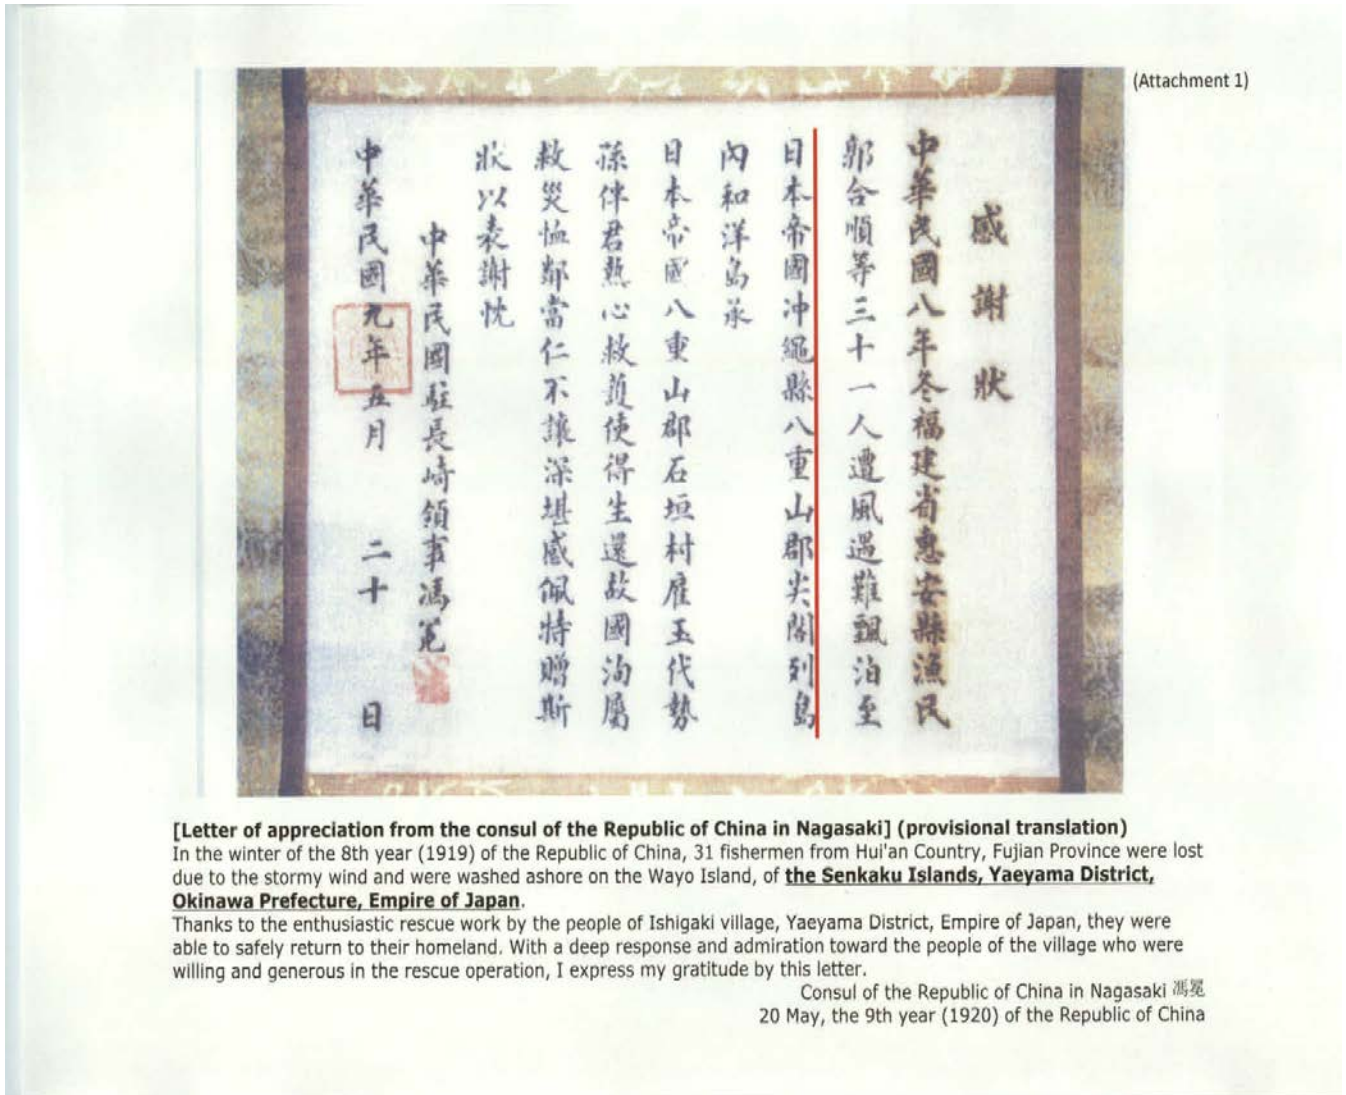 (Attachment 1)
感謝狀
中華民國八年冬福建省惠安縣漁民
郭合順等三十一人遭風遇難飄泊至
日本帝國沖繩縣八重山郡尖閣列島
內和洋島承
日本帝國八重山郡石垣村雇玉代勢
孫伴君熱心救護使得生還故國洵屬
救災恤鄰當仁不讓深堪感佩特贈斯
狀以表謝忱
中華民國駐長崎領事馮冕
中華民國九年五月二十日
[Letter of appreciation from the consul of the Republic of China in Nagasaki] (provisional translation)
In the winter of the 8th year (1919) of the Republic of China, 31 fishermen from Hui'an Country, Fujian Province were lost
due to the stormy wind and were washed ashore on the Wayo Island, of the Senkaku Islands, Yaeyama District,
Okinawa Prefecture, Empire of Japan.
Thanks to the enthusiastic rescue work by the people of Ishigaki village, Yaeyama District, Empire of Japan, they were
able to safely return to their homeland. With a deep response and admiration toward the people of the village who were
willing and generous in the rescue operation, I express my gratitude by this letter.
Consul of the Republic of China in Nagasaki 馮冕
20 May, the 9th year (1920) of the Republic of China